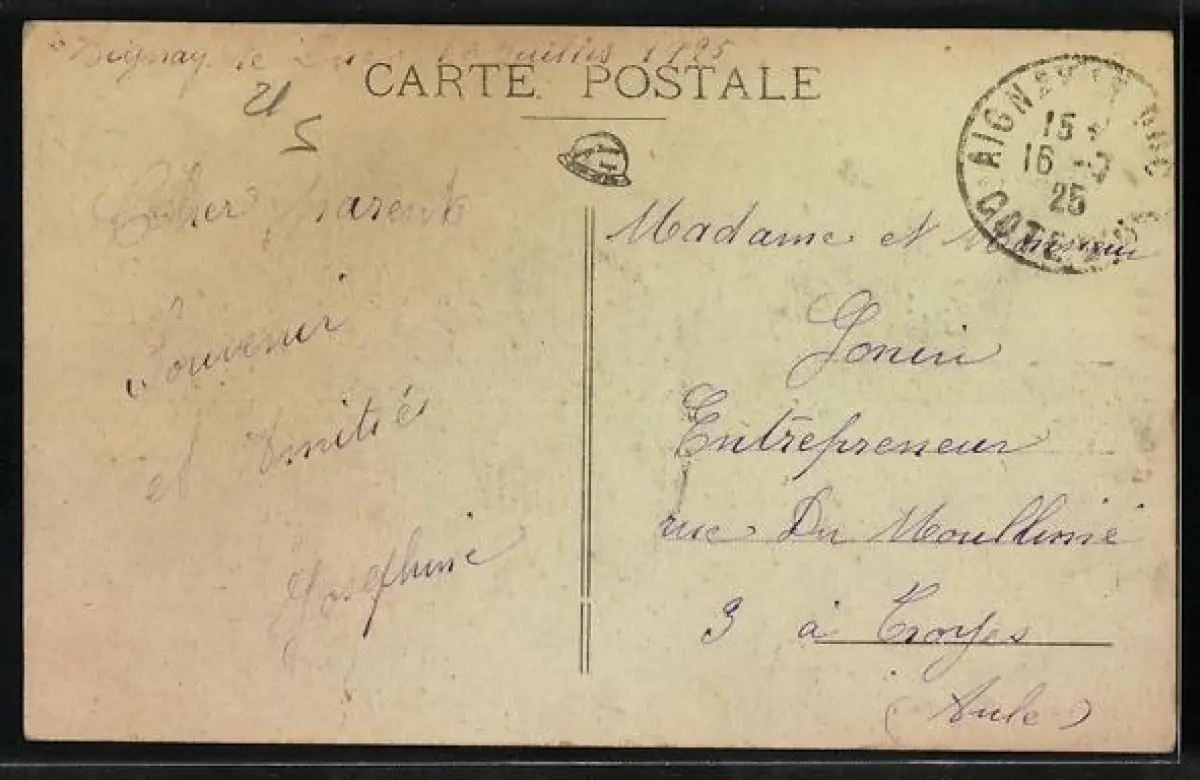 Aignay le Duc juillet 1925
CARTE POSTALE
AIGNAY LE DUC
15
16 -7
25
COTE D'OR
Cher Parents
Souvenir
et Amitié
Joséphine
Madame et Monsieur
Gonin
Entrepreneur
rue Du
3 à Troyes
(Aube)